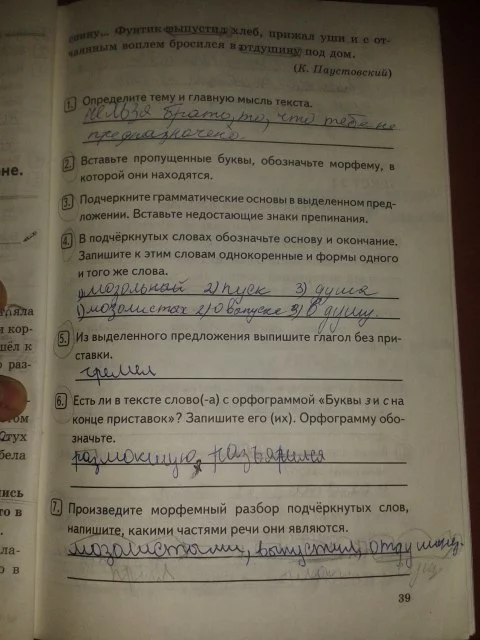 спину... Фунтик выпустил хлеб, прижал уши и с от-
чаянным воплем бросился в отдушину под дом.
(К. Паустовский)
1. Определите тему и главную мысль текста.
нельзя брать то, что тебе не
предназначено.
2. Вставьте пропущенные буквы, обозначьте морфему, в
которой они находятся.
3. Подчеркните грамматические основы в выделенном пред-
ложении. Вставьте недостающие знаки препинания.
4. В подчёркнутых словах обозначьте основу и окончание.
Запишите к этим словам однокоренные и формы одного
и того же слова.
1)мозольный 2)пуск 3) душа
1)мозолистых 2)о выпуске 3) в душу.
5. Из выделенного предложения выпишите глагол без при-
ставки.
гремел
6. Есть ли в тексте слово(-а) с орфограммой «Буквы з и с на
конце приставок»? Запишите его (их). Орфограмму обо-
значьте.
размокшую, разъярился
7. Произведите морфемный разбор подчёркнутых слов,
напишите, какими частями речи они являются.
мозолистыми, выпустил, отдушину.
39
не.
ряла
и кор-
шёл к
о раз-
том
тух
бела
ись
то в
ла-
о в